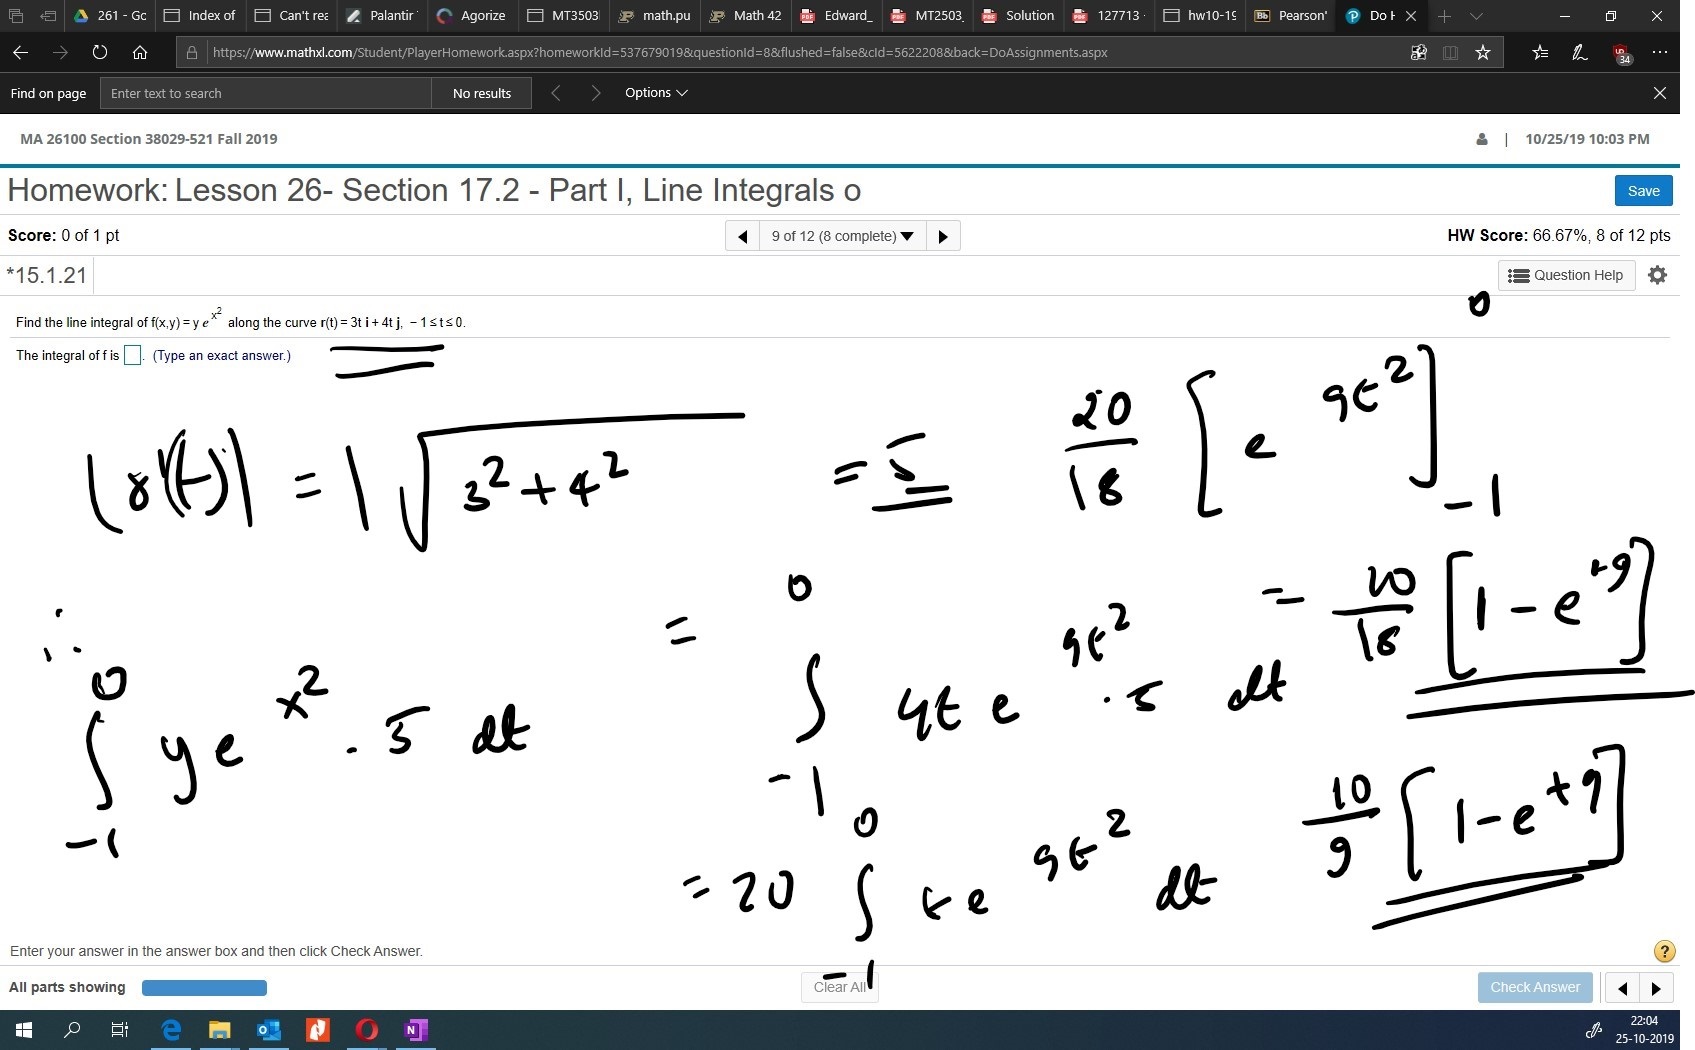 261 - Gc
Index of
Can't rea
Palantir
Agorize
MT3503
math.pu
Math 42
Edward_
MT2503_
Solution
127713
hw10-19
Pearson'
Do H
https://www.mathxl.com/Student/PlayerHomework.aspx?homeworkId=537679019&questionId=8&flushed=false&cId=5622208&back=DoAssignments.aspx
34
Find on page
Enter text to search
No results
Options
MA 26100 Section 38029-521 Fall 2019
| 10/25/19 10:03 PM
Homework: Lesson 26- Section 17.2 - Part I, Line Integrals o
Save
Score: 0 of 1 pt
9 of 12 (8 complete)
HW Score: 66.67%, 8 of 12 pts
*15.1.21
Question Help
Find the line integral of f(x,y) = y e^x² along the curve r(t) = 3t i + 4t j, − 1 ≤ t ≤ 0.
The integral of f is . (Type an exact answer.)
|r'(t)| = |√(3² + 4²) = 5
20/18 [e^9t²]_-1^0
= 20/18 [1 - e^+9]
∴ ∫_-1^0 y e^x² . 5 dt
= ∫_-1^0 4t e^9t² . 5 dt
= 20 ∫_-1^0 t e^9t² dt
10/9 [1 - e^+9]
Enter your answer in the answer box and then click Check Answer.
?
All parts showing
Clear All
Check Answer
22:04
25-10-2019